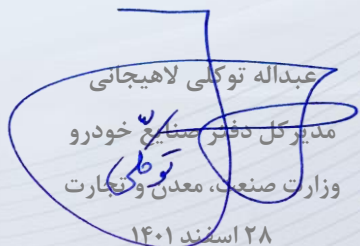 عبداله توکلی لاهیجانی
مدیرکل دفتر صنایع خودرو
توکلی
وزارت صنعت، معدن و تجارت
۲۸ اسفند ۱۴۰۱